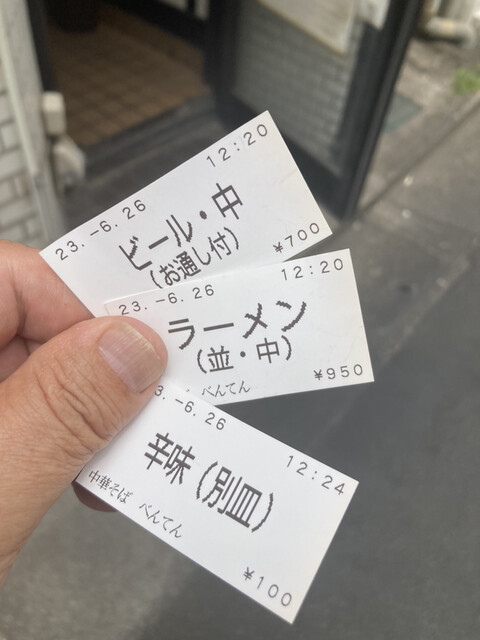 12:20
23.-6.26
ビール・中
(お通し付)
¥700
12:20
23.-6.26
ラーメン
(並・中)
¥950
べんてん
3.-6.26
12:24
辛味(別皿)
中華そば べんてん
¥100